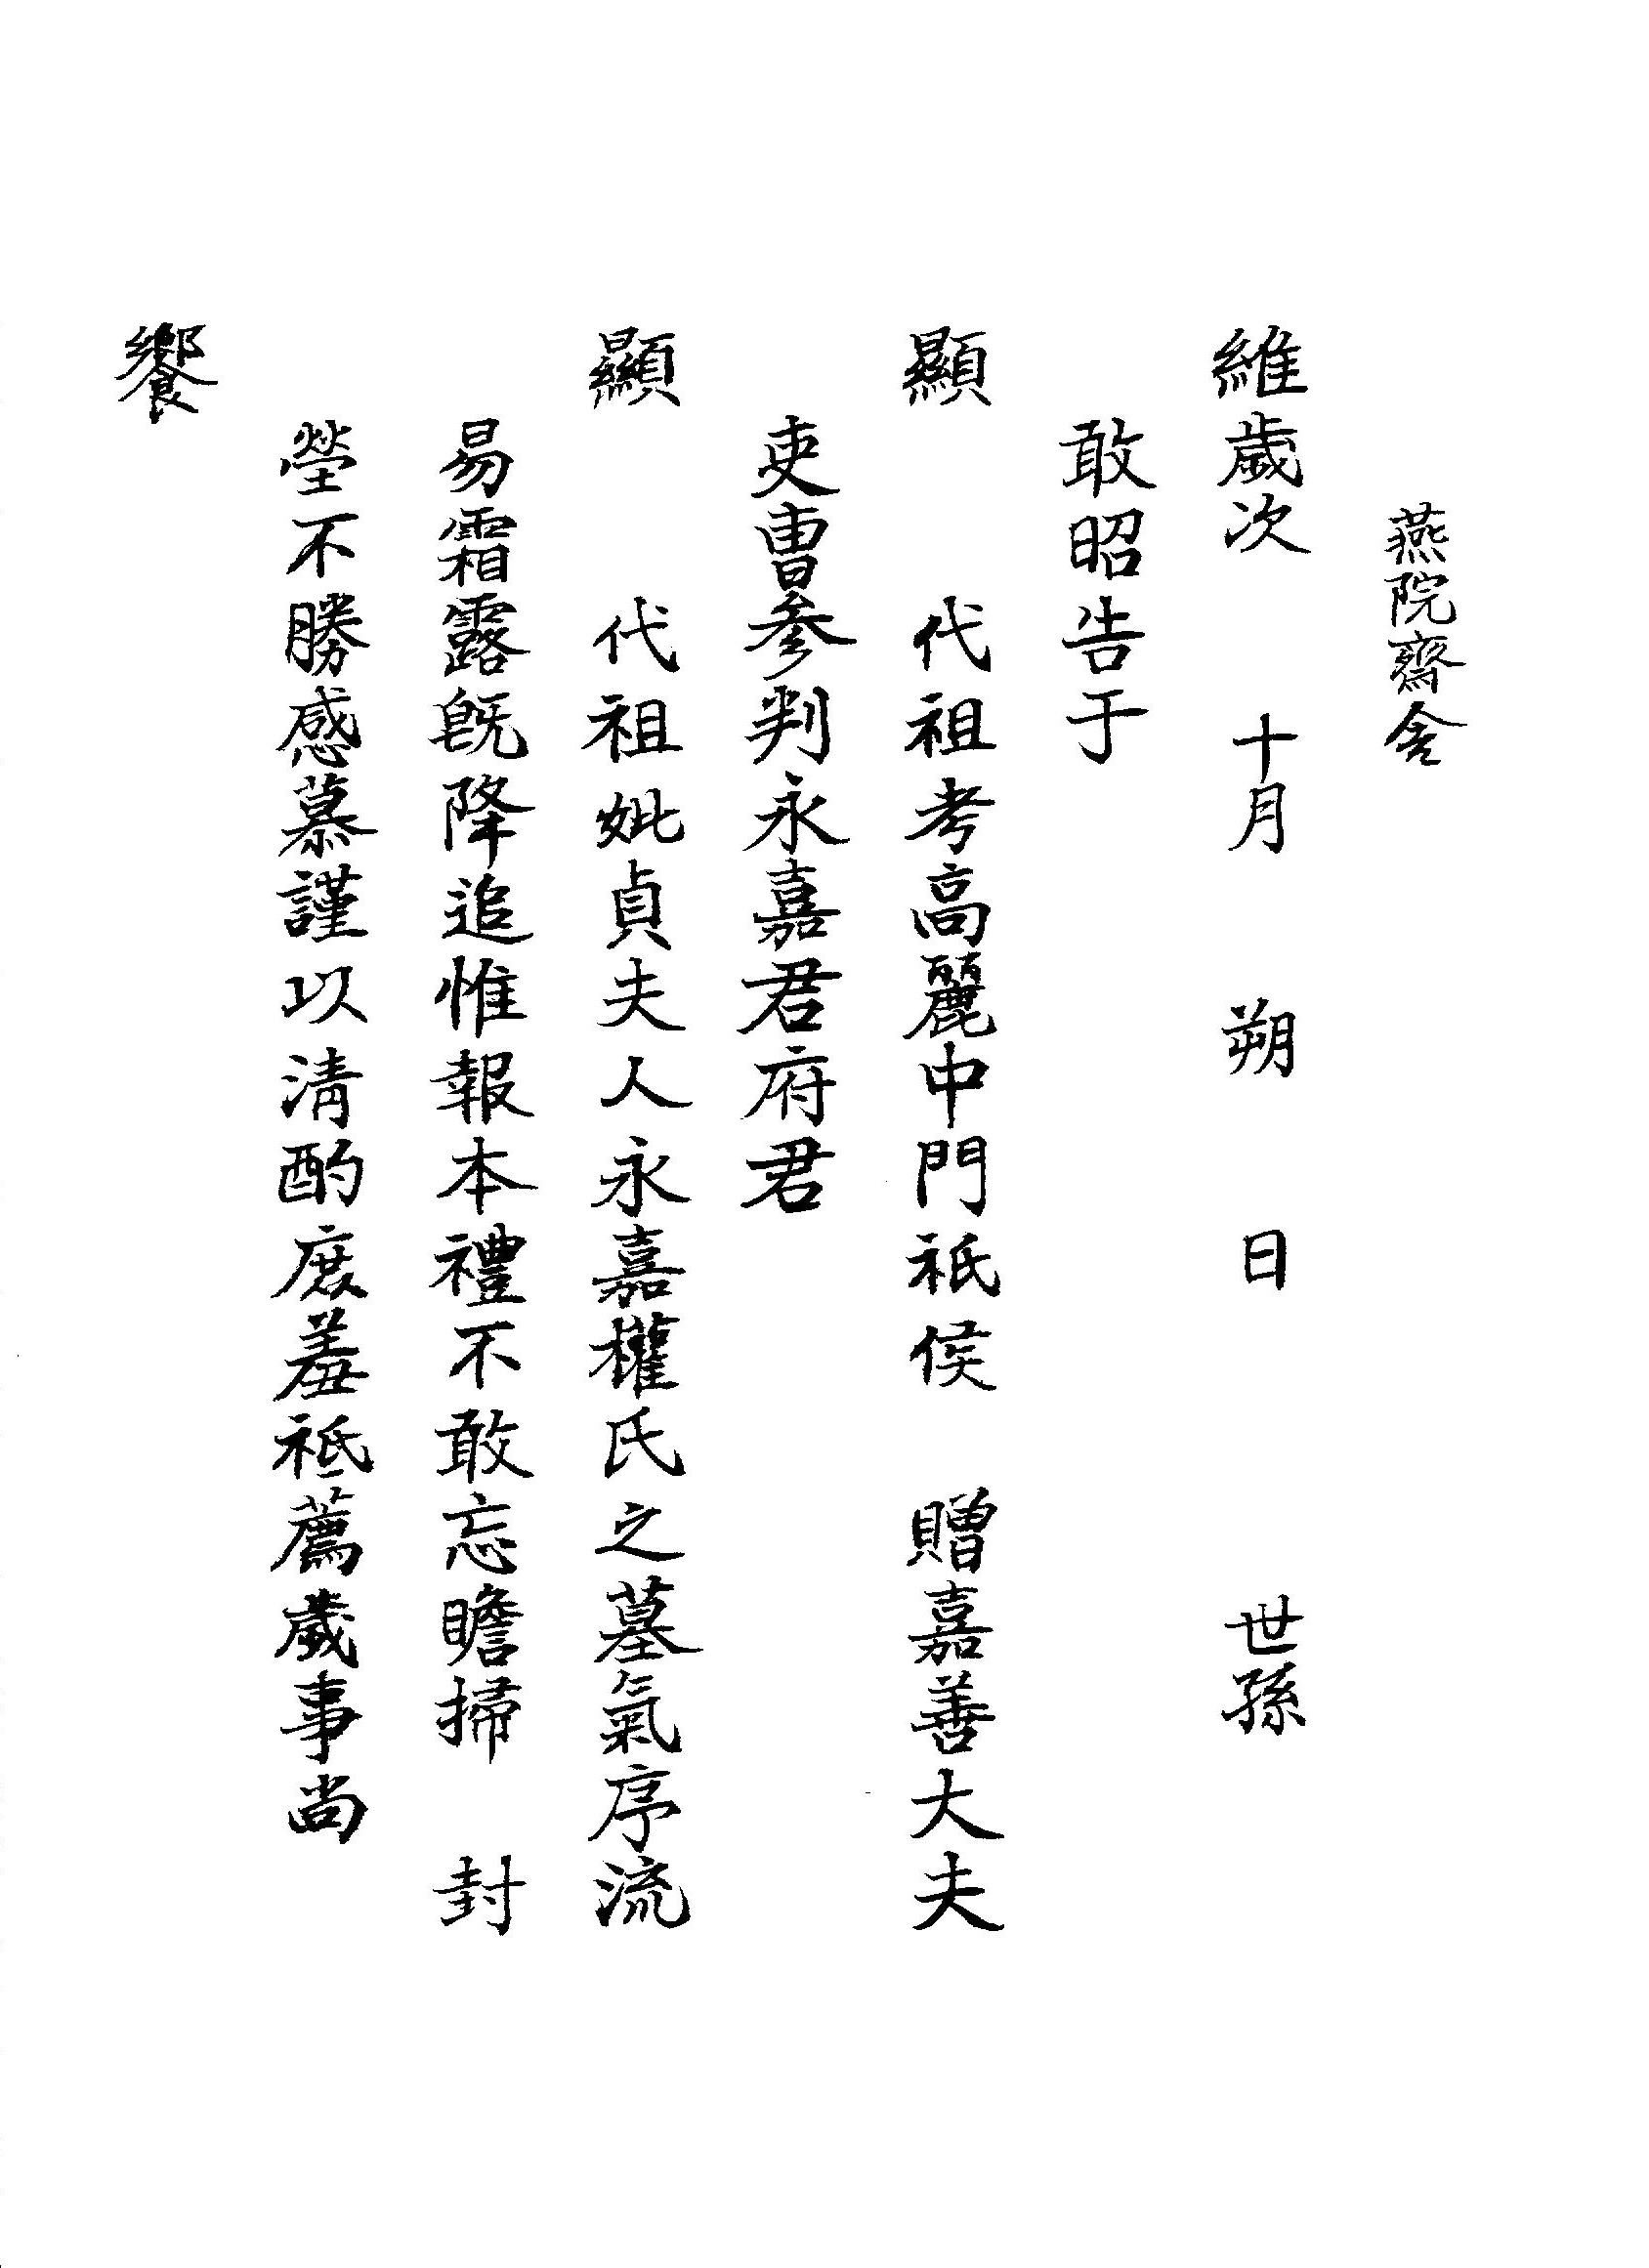 燕院齋舍
維歲次 十月 朔 日 世孫
敢昭告于
顯 代祖考高麗中門祗侯 贈嘉善大夫
吏曺参判永嘉君府君
顯 代祖妣貞夫人永嘉權氏之墓氣序流
易霜露旣降追惟報本禮不敢忘瞻掃 封
塋不勝感慕謹以淸酌庶羞祗薦歲事尙
饗